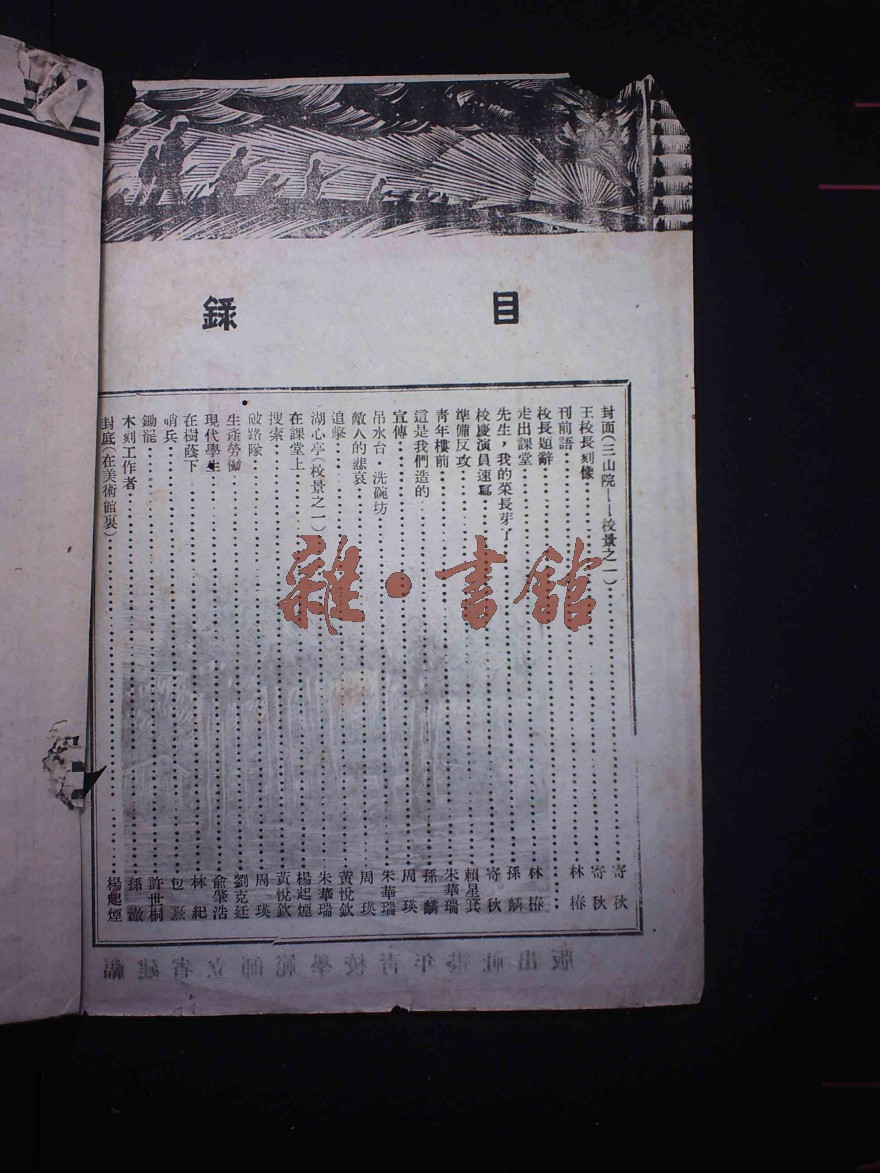 目錄
封面（三山院——校景之一）……寄秋
王校長刻像……寄秋
刊前語……林椿
校長題辭……
走出課堂……林椿
先生，我的菜長芽了……孫麟
校慶演員速寫……寄秋
準備反攻……賴星箕
青年樓前……朱華瑞
這是我們造的……孫麟
宣傳……周瑛
吊水台·洗碗坊……朱華瑞
敵人的悲哀……周瑛
追擊……黃悅欽
湖心亭（校景之一）……朱華瑞
在課堂上……楊起煙
搜索……黃悅欽
破路隊……周瑛
生產勞働……劉克廷
現代學生……俞肇浩
在樹蔭下……林紀
哨兵……包熹
鋤罷……許世桐
木刻工作者……孫
封底（在美術館裏）……楊起煙
雜·書館
福建省立師範學校青年畫社出版